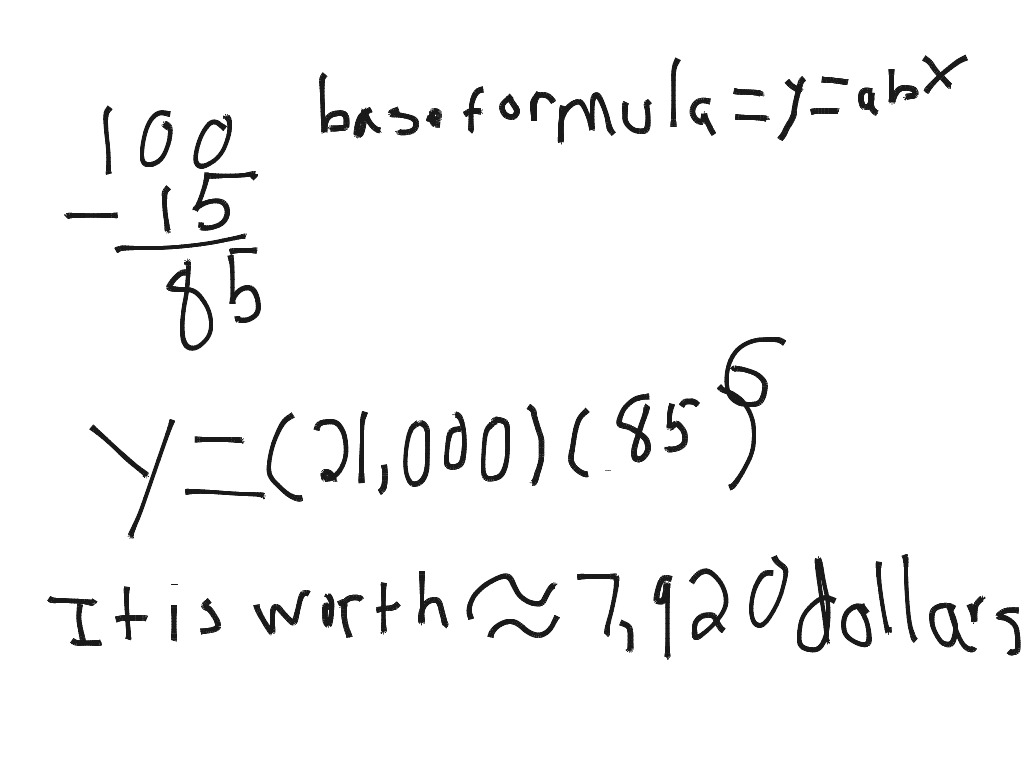 base formula = y = ab^x
100
- 15
85
y = (21,000)(.85)^6
It is worth ≈ 7,920 dollars